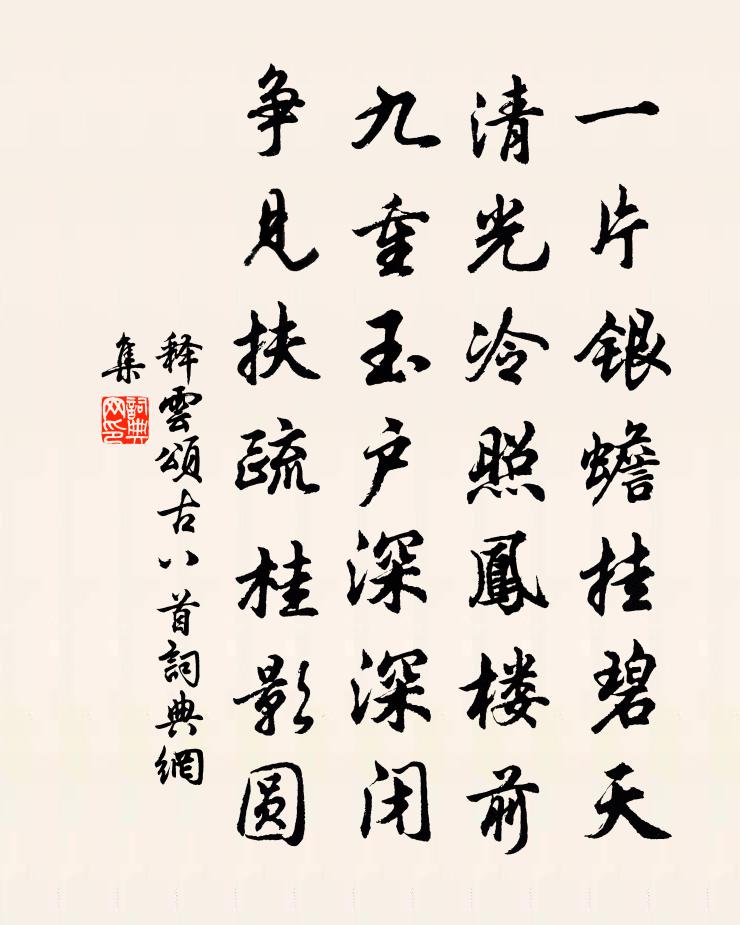 一片银蟾挂碧天
清光冷照鳳楼前
九重玉户深深闭
争见扶疏桂影圆
释雲頌古八首詞典網
集
詞典
网印